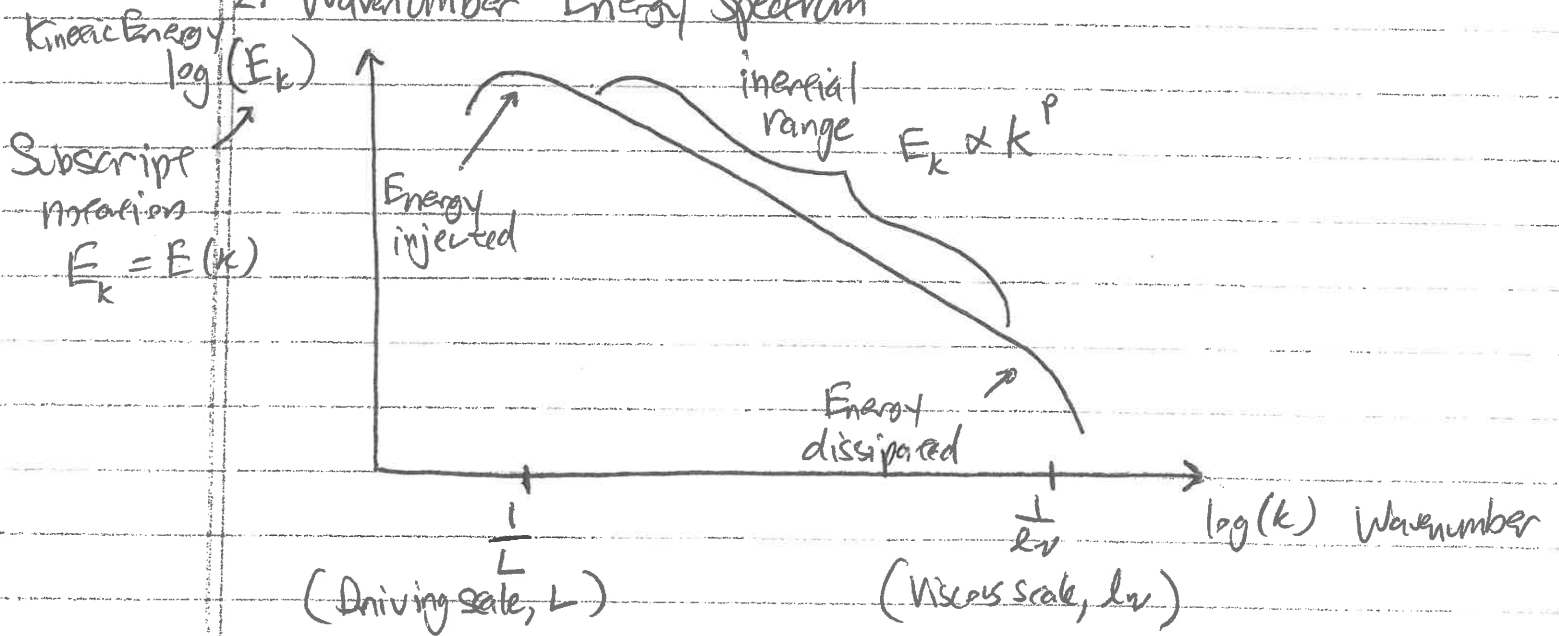 2. Wavenumber Energy Spectrum
Kinetic Energy
log (E_k)
Subscript
notation
E_k = E(k)
Energy
injected
inertial
range
E_k ∝ k^p
Energy
dissipated
1/L
(Driving scale, L)
1/l_ν
(Viscous scale, l_ν)
log(k) Wavenumber